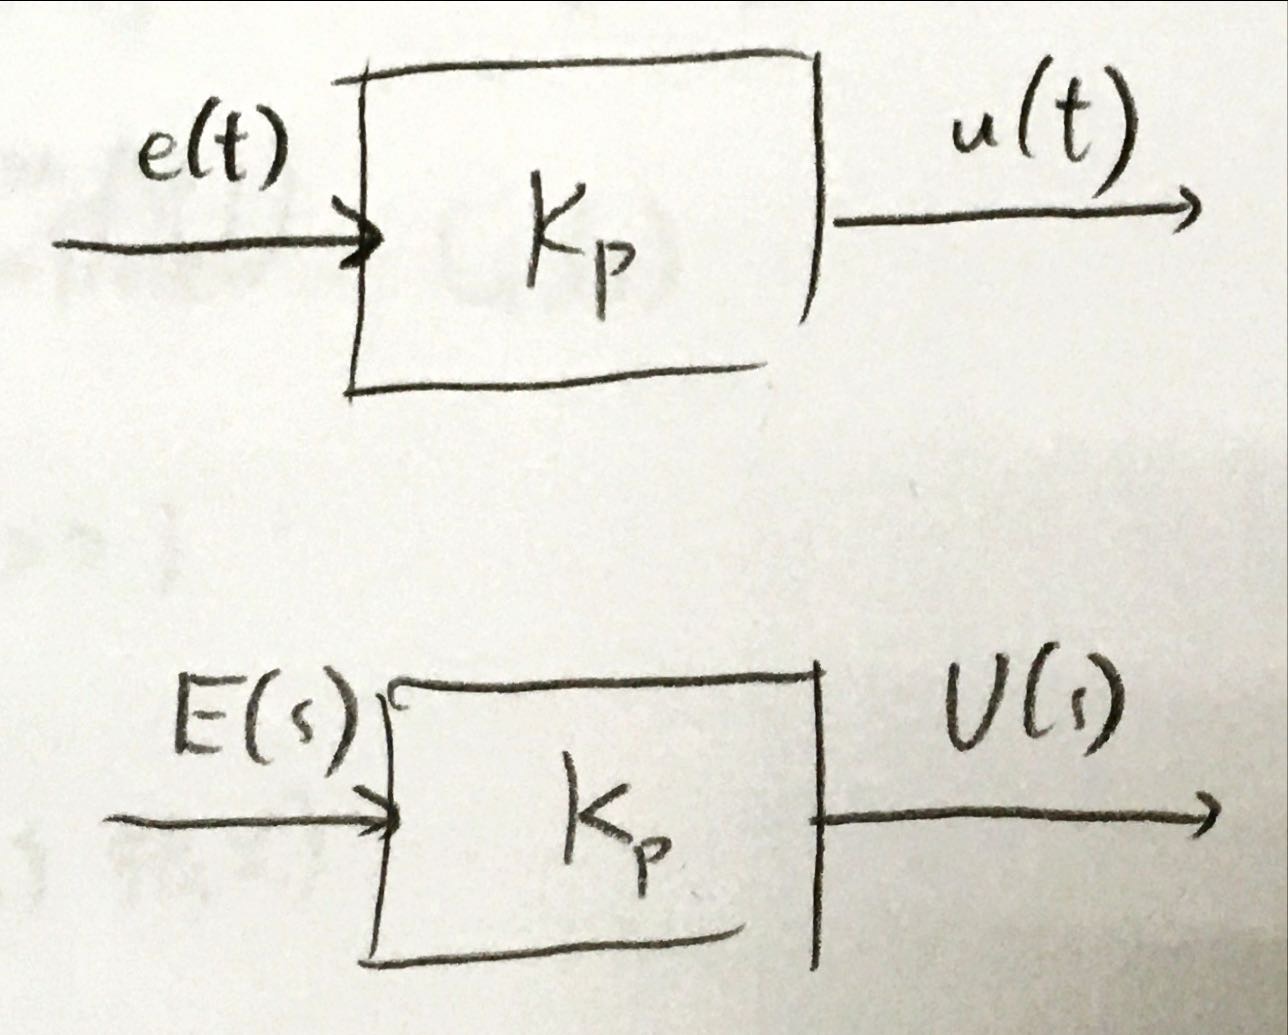 e(t) Kp u(t)
E(s) Kp U(s)